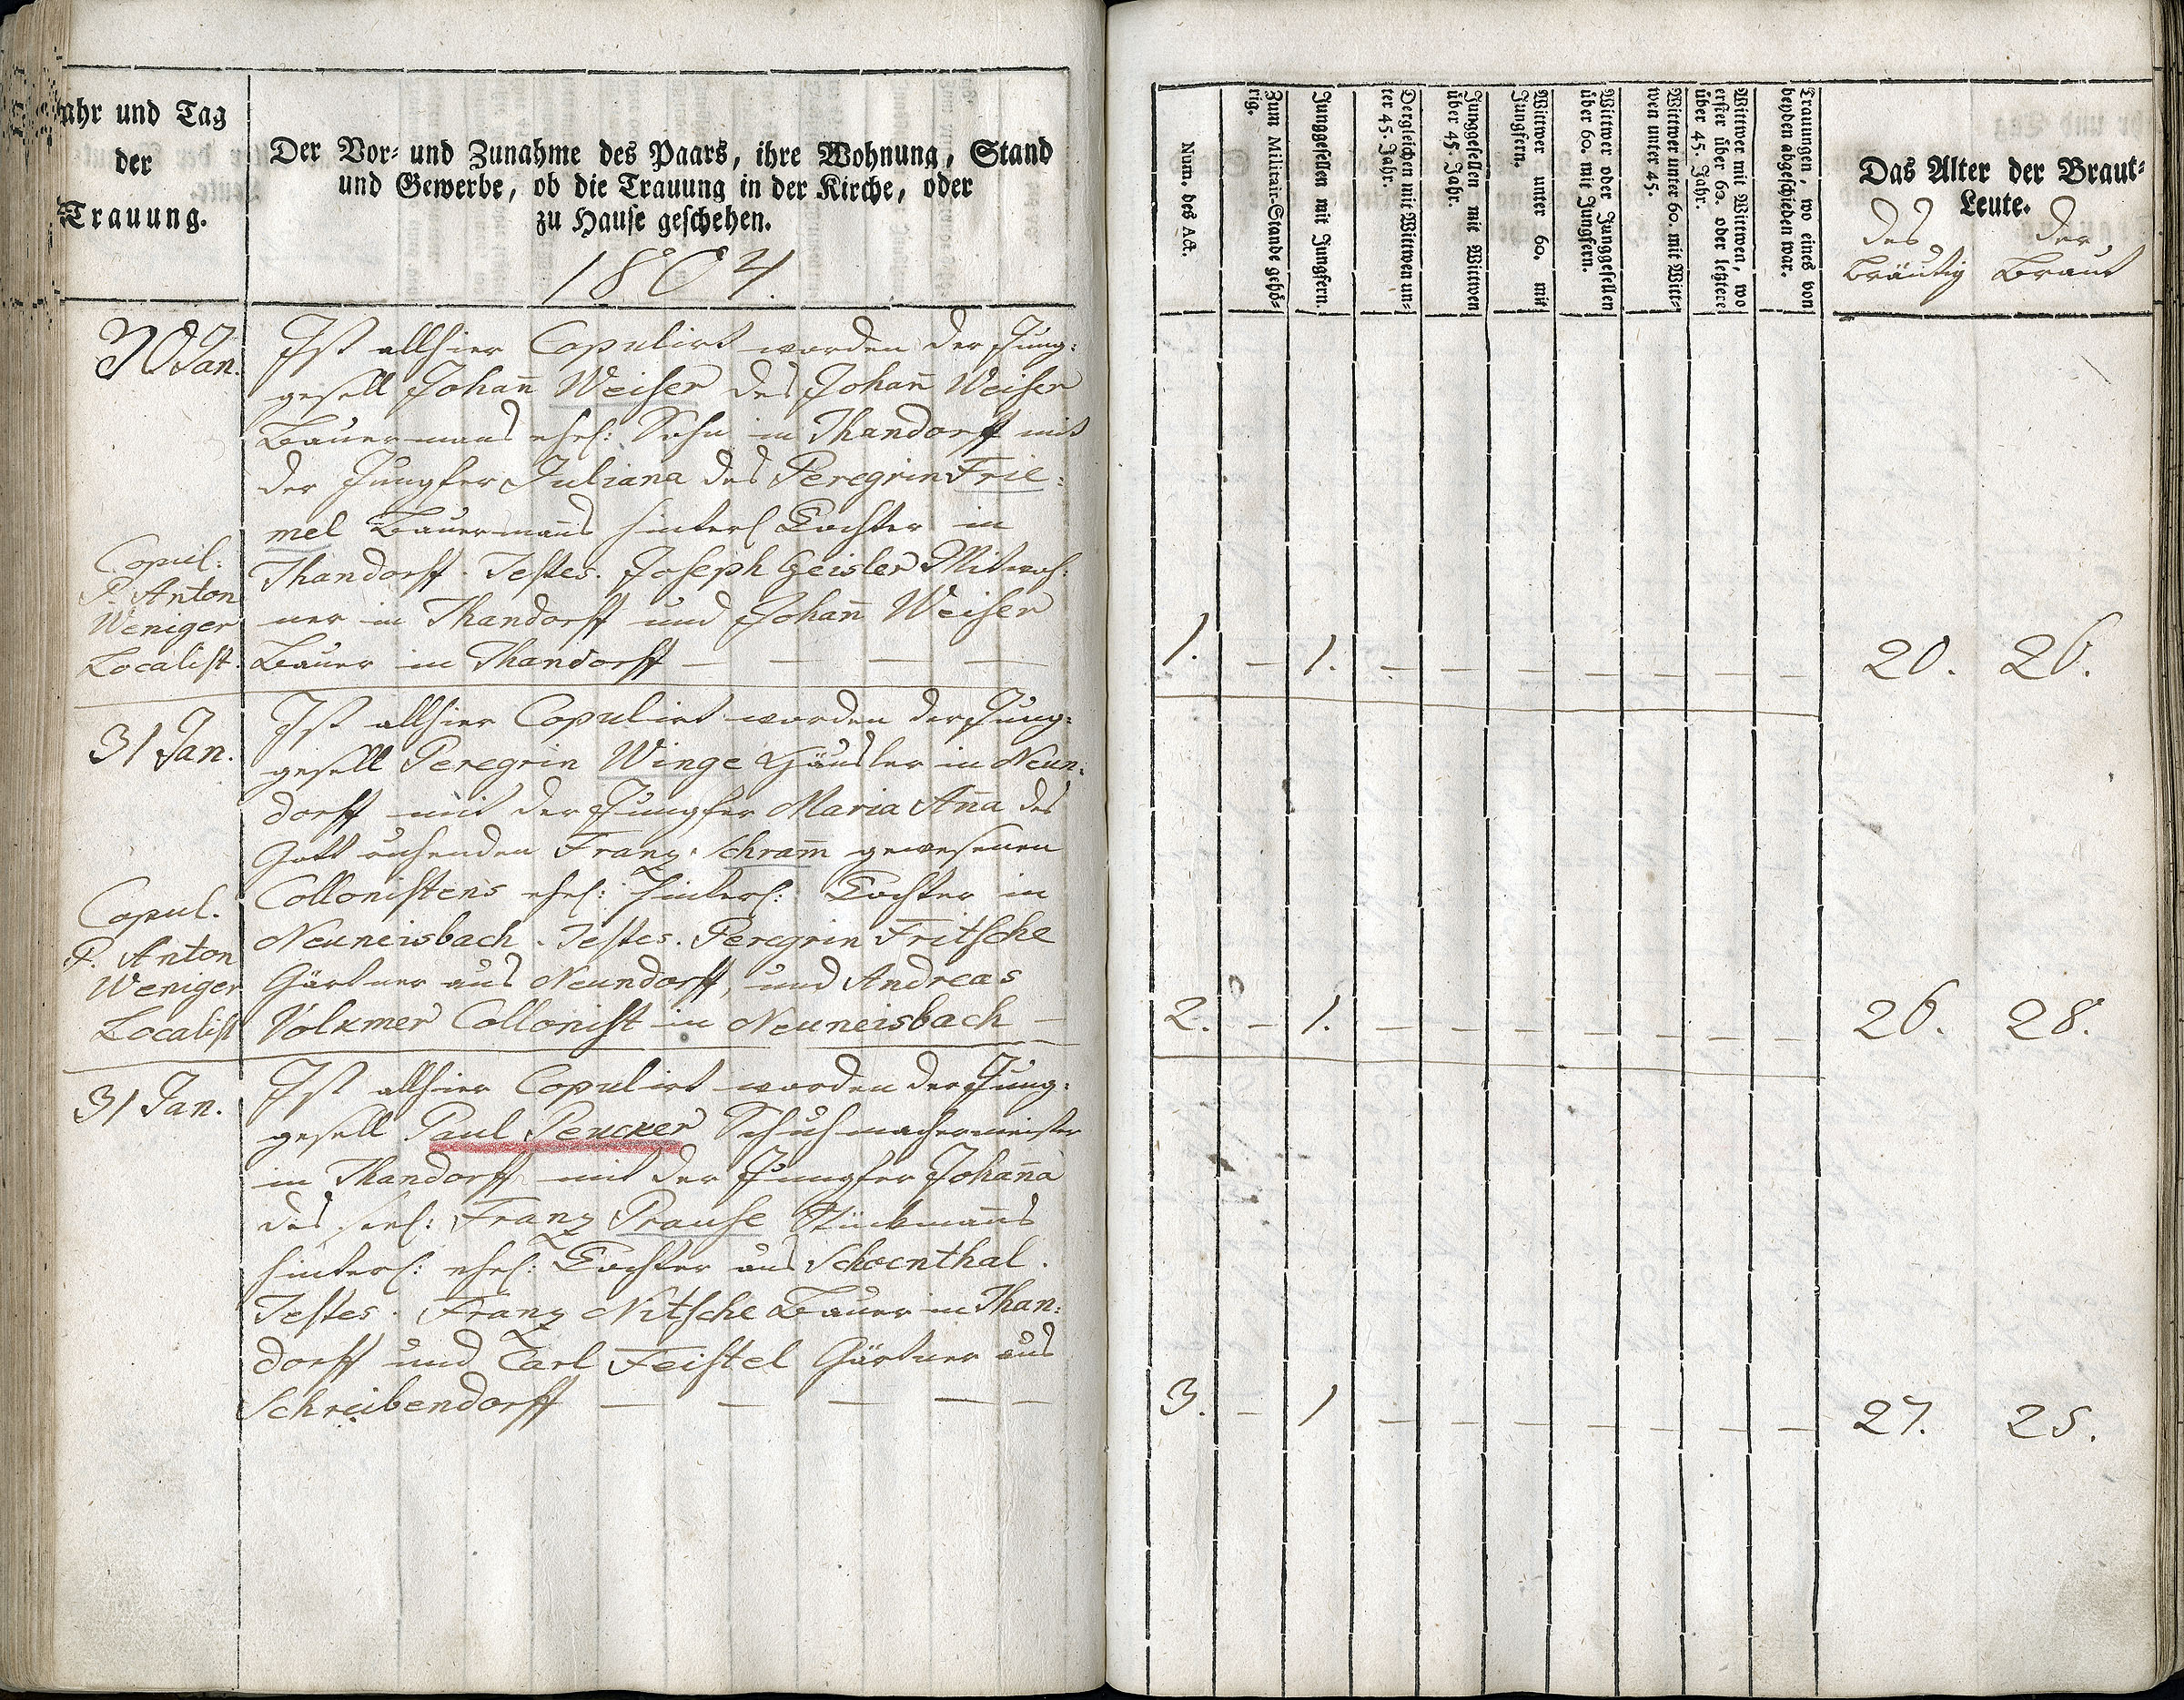 Jahr und Tag
der
Trauung.
Der Vor- und Zunahme des Paars, ihre Wohnung, Stand
und Gewerbe, ob die Trauung in der Kirche, oder
zu Hause geschehen.
1804.
30 Jan.
Ist allhier Copulirt worden der Jung:
gesell Johan̅ Weiser des Johan̅ Weiser
Bauermans ehel: Sohn in Thandorff mit
der Jungfer Juliana des Peregrin Frie:
mel Bauermañs hinterl Tochter in
Thandorff. Testes. Joseph Geisler Mitwoh:
ner in Thandorff und Johan̅ Weiser
Bauer in Thandorff — — — —
Copul:
P. Anton
Weniger
Localist.
31 Jan.
Ist allhier Copulirt worden der Jung:
gesell Peregrin Winge Häusler in Neun:
dorff mit der Jungfer Maria An̅a des
Gott ruhenden Franz Schram̅ gewesenen
Collonistens ehel: hinterl: Tochter in
Neuneisbach. Testes. Peregrin Fritsche
Gärtner aus Neundorff, und Andreas
Volkmer Collonist in Neuneisbach —
Copul.
P. Anton
Weniger
Localist
31 Jan.
Ist allhier Copulirt worden der Jung:
gesell Paul Peucker Schuhmachermeister
in Thandorff mit der Jungfer Johan̅a
des seel: Franz Prause Stückman̅s
hinterl: ehel: Tochter aus Schoenthal.
Testes. Franz Nitsche Bauer in Than:
dorff und Carl Feistel Gärtner aus
Schreibendorff — — — — —
Num. des Act.
Zum Militair-Stande gehö-
rig.
Junggesellen mit Jungfern.
Dergleichen mit Wittwen un-
ter 45. Jahr.
Junggesellen mit Wittwen
über 45. Jahr.
Wittwer unter 60. mit
Jungfern.
Wittwer oder Junggesellen
über 60. mit Jungfern.
Wittwer unter 60. mit Witt-
wen unter 45.
Wittwer mit Wittwen, wo
erster über 60. oder letztere
über 45. Jahr.
Trauungen, wo eines von
beyden abgeschieden war.
Das Alter der Braut-
Leute.
des der
Bräutig Braut
1. – 1. – – – – – – – 20. 26.
2. – 1. – – – – – – – 26. 28.
3. – 1 – – – – – – – 27. 25.